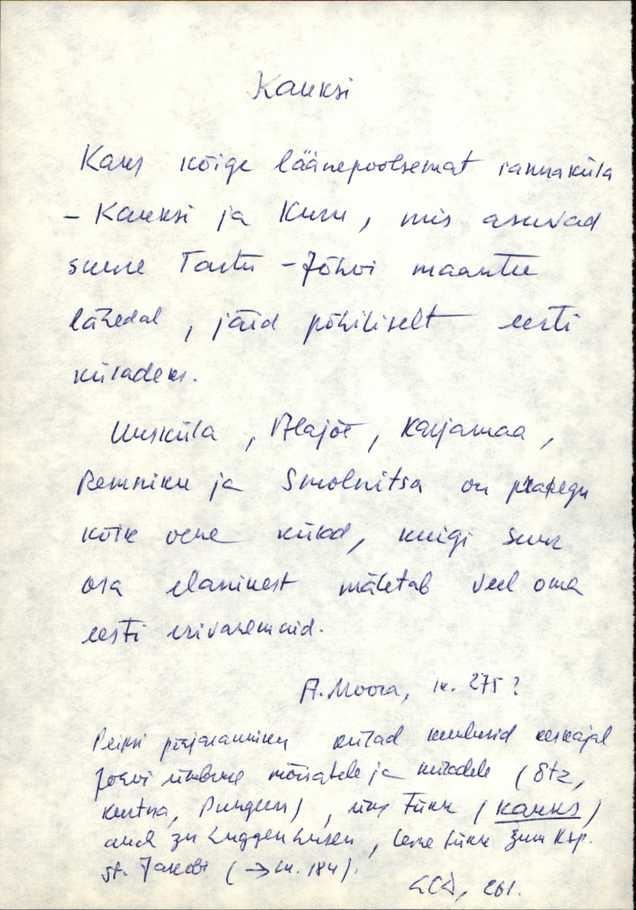 Kauksi
Kaks kõige läänepoolsemat rannaküla
- Kauksi ja Kuru, mis asuvad
suure Tartu - Jõhvi maantee
lähedal, jäid põhiliselt eesti
küladeks.
Uusküla, Alajõe, Karjamaa,
Remniku ja Smolnitsa on praegu
kõik vene külad, kuigi suur
osa elanikest mäletab veel oma
eesti esivanemaid.
A. Moora, lk. 275?
Peipsi põhjaranniku külad kuulusid keskajal
Jõhvi ümbruse mõisatele ja küladele (Etz,
Kurtna, Pungern), (Kauks)
auch zu Luggenhusen, zum Ksp.
St. Jakobi (→ lk. 184).
LCD, 261.